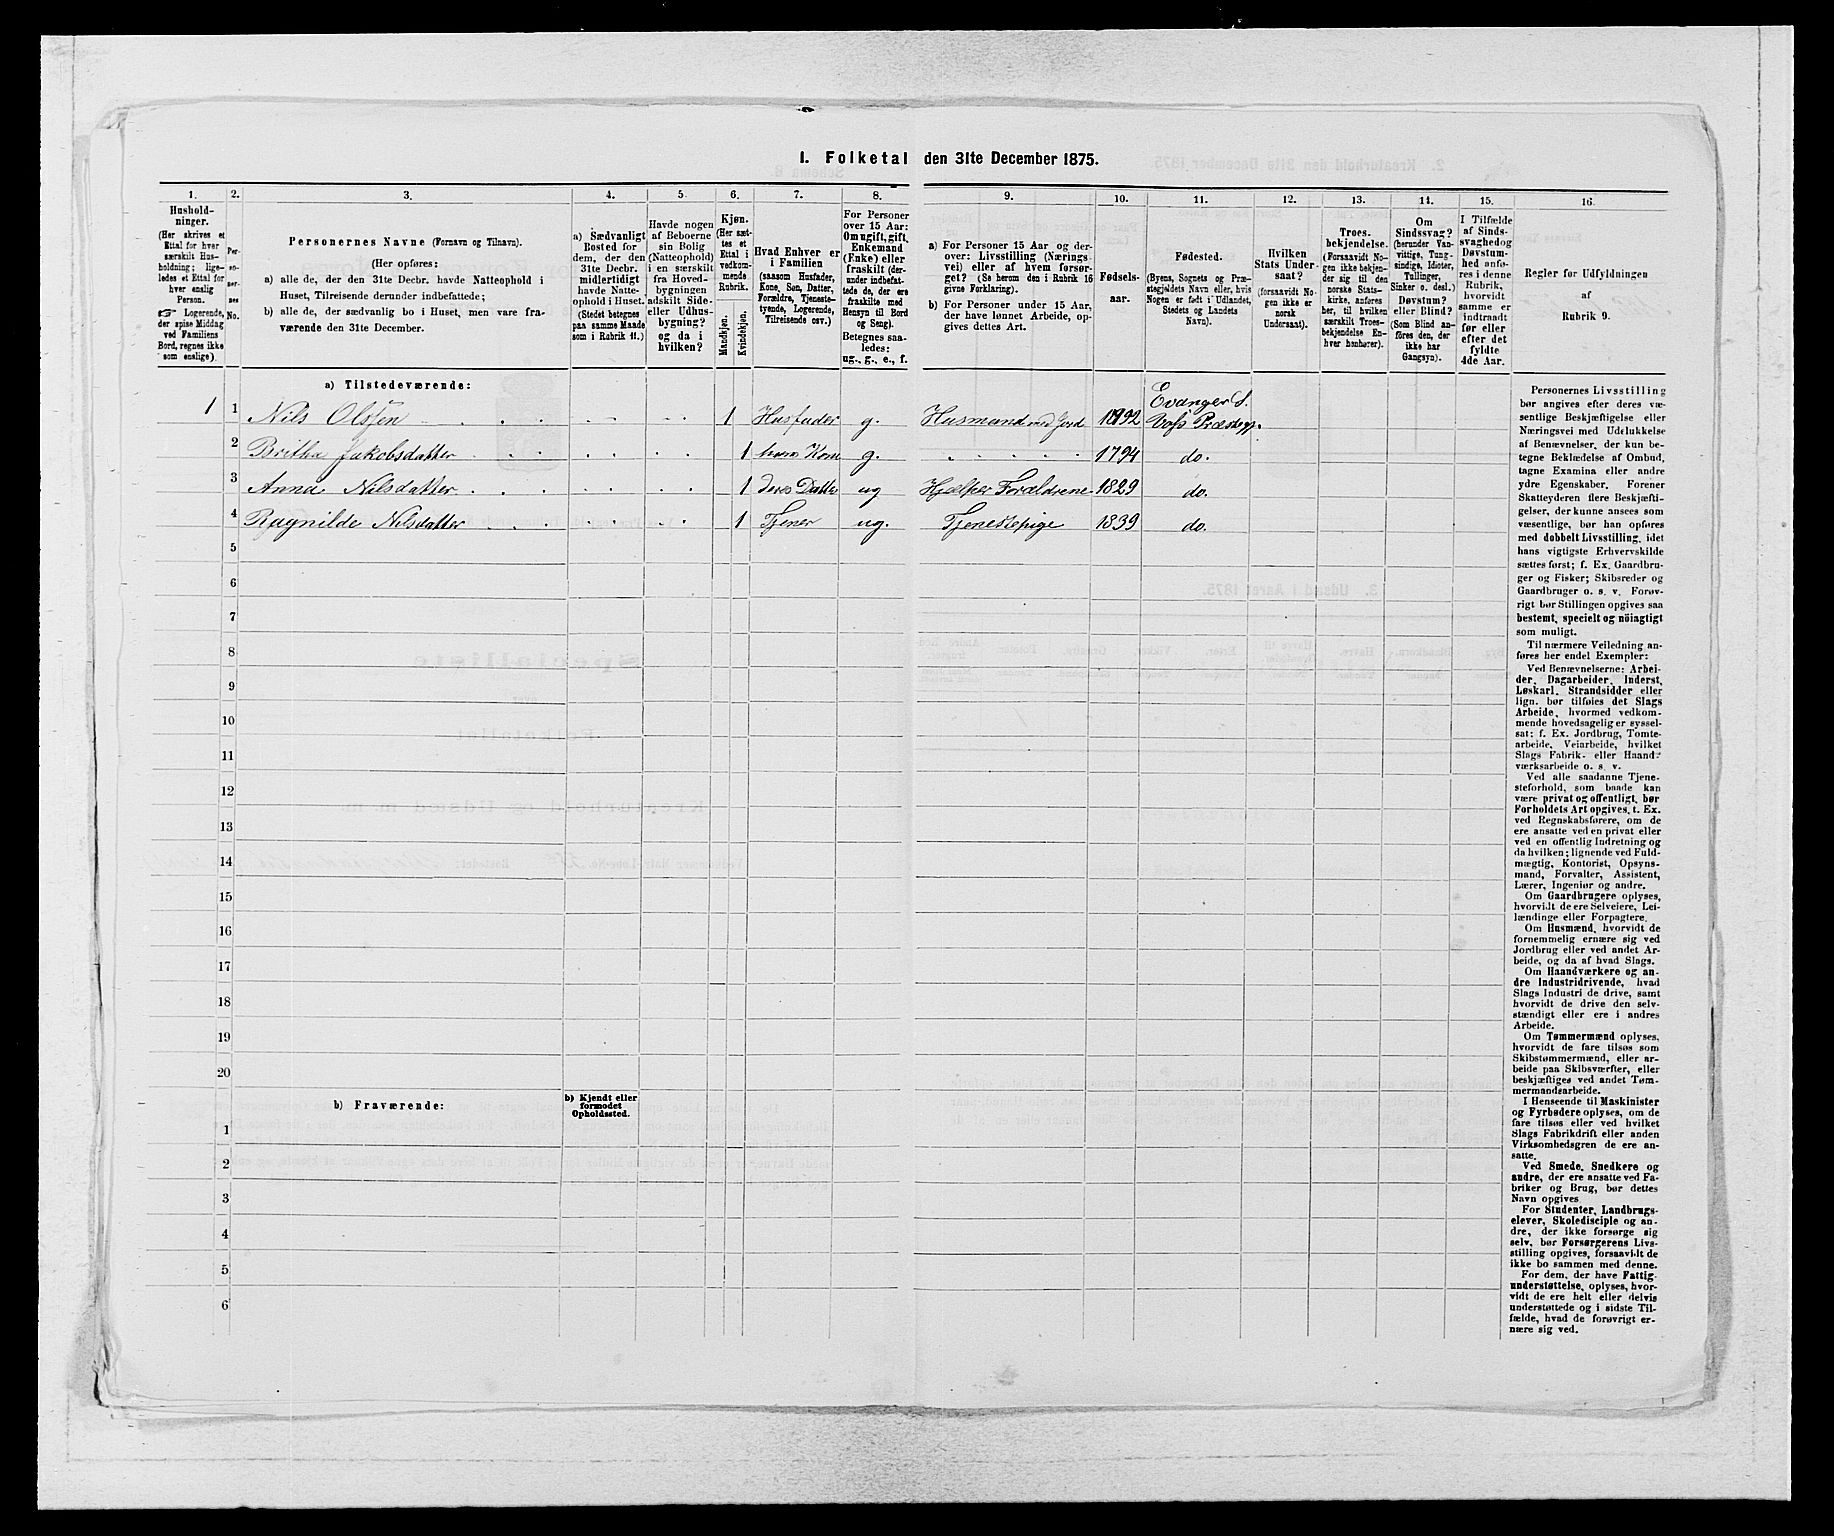 1. Folketal den 31te December 1875.
1. 2. 3. 4. 5. 6. 7. 8. 9. 10. 11. 12. 13. 14. 15. 16.
Hushold-
ninger.
(Her skrives et
Ettal for hver
særskilt Hus-
holdning; lige-
ledes et Ettal for
hver enslig
Person.
☞ Logerende,
der spise Middag
ved Familiens
Bord, regnes ikke
som enslige).
Per-
so-
ner-
nes
No.
Personernes Navne (Fornavn og Tilnavn).
(Her opføres:
a) alle de, der den 31te Decbr. havde Natteophold i
Huset, Tilreisende derunder indbefattede;
b) alle de, der sædvanlig bo i Huset, men vare fra-
værende den 31te December.
a) Sædvanligt
Bosted for
dem, der den
31te Decbr.
midlertidigt
havde Natte-
ophold i Huset.
(Stedet betegnes
paa samme Maade
som i Rubrik 11.)
Havde nogen
af Beboerne
sin Bolig
(Natteophold)
i en særskilt
fra Hoved-
bygningen
adskilt Side-
eller Udhus-
bygning?
og da i
hvilken?
Kjøn.
(Her sæt-
tes et
Ettal i
vedkom-
mende
Rubrik.
Mandkjøn.
Kvindekjøn.
Hvad Enhver er
i Familien
(saasom Husfader,
Kone, Søn, Datter,
Forældre, Tjeneste-
tyende, Logerende,
Tilreisende osv.)
For Personer
over 15 Aar:
Om ugift, gift,
Enkemand
(Enke) eller
fraskilt (der-
under indbefat-
tede de, der ere
fraskilte med
Hensyn til Bord
og Seng).
Betegnes saa-
ledes:
ug., g., e., f.
a) For Personer 15 Aar og der-
over: Livsstilling (Nærings-
vei) eller af hvem forsør-
get? (Se herom den i Rubrik 16
givne Forklaring).
b) For Personer under 15 Aar,
der have lønnet Arbeide, op-
gives dettes Art.
Fødsels-
aar.
Fødested.
(Byens, Sognets og Præ-
stegjældets Navn eller, hvis
Nogen er født i Udlandet,
Stedets og Landets
Navn).
Hvilken
Stats Under-
saat?
(forsaavidt No-
gen ikke er
norsk
Undersaat).
Troes-
bekjendelse.
(Forsaavidt No-
gen ikke bekjen-
der sig til den
norske Stats-
kirke, anføres
her, til hvilken
særskilt Troes-
bekjendelse En-
hver henhører).
Om
Sindssvag?
(herunder Van-
vittige, Tung-
sindige, Idioter,
Tullinger,
Sinker o. desl.)
Døvstum?
eller Blind?
(Som Blind an-
føres den, der
ikke har
Gangsyn).
I Tilfælde
af Sinds-
svaghed og
Døvstum-
hed anfø-
res i denne
Rubrik,
hvorvidt
samme er
indtraadt
før eller
efter det
fyldte
4de Aar.
Regler for Udfyldningen
af
Rubrik 9.
a) Tilstedeværende:
Evanger S.
1 1 Nils Olsen 1 Husfader g. Husmand med Jord 1792 Voss Præstegj.
2 Britha Jakobsdatter 1 hans Kone g. 1794 do.
3 Anna Nilsdatter 1 deres Datter ug Hjælper Forældrene 1829 do.
4 Ragnilde Nilsdatter 1 Tjener ug. Tjenestepige 1839 do.
5
6
7
8
9
10
11
12
13
14
15
16
17
18
19
20
b) Fraværende:
b) Kjendt eller
formodet
Opholdssted.
1
2
3
4
5
6
Personernes Livsstilling
bør angives efter deres væ-
sentlige Beskjæftigelse eller
Næringsvei med Udelukkelse
af Benævnelser, der kun be-
tegne Beklædelse af Ombud,
tagne Examina eller andre
ydre Egenskaber. Forener
Skatteyderen flere Beskjæfti-
gelser, der kunne ansees som
væsentlige, bør han opføres
med dobbelt Livsstilling, idet
hans vigtigste Erhvervskilde
sættes først; f. Ex. Gaardbru-
ger og Fisker; Skibsreder og
Gaardbruger o. s. v. Forøv-
rigt bør Stillingen opgives saa
bestemt, specielt og nöiagtigt
som muligt.
Til nærmere Veiledning an-
føres her endel Exempler:
Ved Benævnelserne: Arbei-
der, Dagarbeider, Inderst,
Løskarl, Strandsidder eller
lign. bør tilføies det Slags
Arbeide, hvormed vedkom-
mende hovedsagelig er syssel-
sat; f. Ex. Jordbrug, Tomte-
arbeide, Veiarbeide, hvilket
Slags Fabrik- eller Haand-
værksarbeide o. s. v.
Ved alle saadanne Tjene-
steforhold, som baade kan
være privat og offentligt, bør
Forholdets Art opgives, t. Ex.
ved Regnskabsførere, om de
ere ansatte ved en privat eller
ved en offentlig Indretning og
da hvilken; lignende ved Fuld-
mægtig, Kontorist, Opsyns-
mand, Forvalter, Assistent,
Lærer, Ingeniør og andre.
Om Gaardbrugere oplyses,
hvorvidt de ere Selveiere, Lei-
lændinge eller Forpagtere.
Om Husmænd, hvorvidt de
fornemmelig ernære sig ved
Jordbrug eller ved andet Ar-
beide, og da af hvad Slags.
Om Haandværkere og an-
dre Industridrivende, hvad
Slags Industri de drive, samt
hvorvidt de drive den selv-
stændigt eller ere i andres
Arbeide.
Om Tømmermænd oplyses,
hvorvidt de fare tilsøs som
Skibstømmermænd, eller ar-
beide paa Skibsværfter, eller
beskjæftiges ved andet Tøm-
mermandsarbeide.
I Henseende til Maskinister
og Fyrbødere oplyses, om de
fare tilsøs eller ved hvilket
Slags Fabrikdrift eller anden
Virksomhedsgren de ere an-
satte.
Ved Smede, Snedkere og
andre, der ere ansatte ved Fa-
briker og Brug, bør dettes
Navn opgives
For Studenter, Landbrugs-
elever, Skoledisciple og an-
dre, der ikke forsørge sig
selv, bør Forsørgerens Livs-
stilling opgives, forsaavidt de
ikke bo sammen med denne.
For dem, der have Fattig-
understøttelse, oplyses, hvor-
vidt de ere helt eller delvis
understøttede og i sidste Til-
fælde, hvad de forøvrigt er-
nære sig ved.